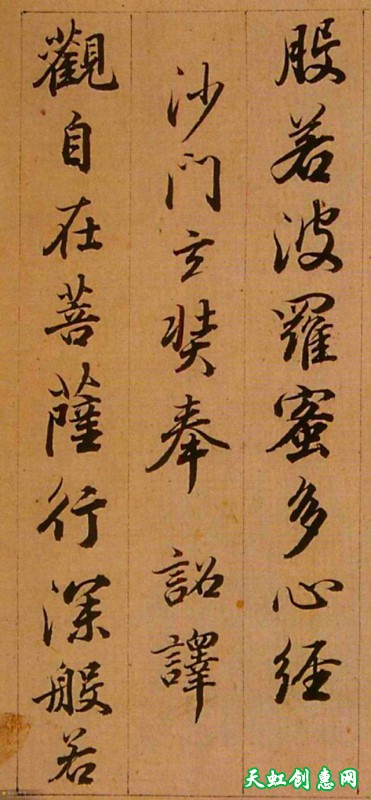 般若波羅蜜多心经
沙門玄奘奉 詔譯
觀自在菩薩行深般若
天虹创惠网